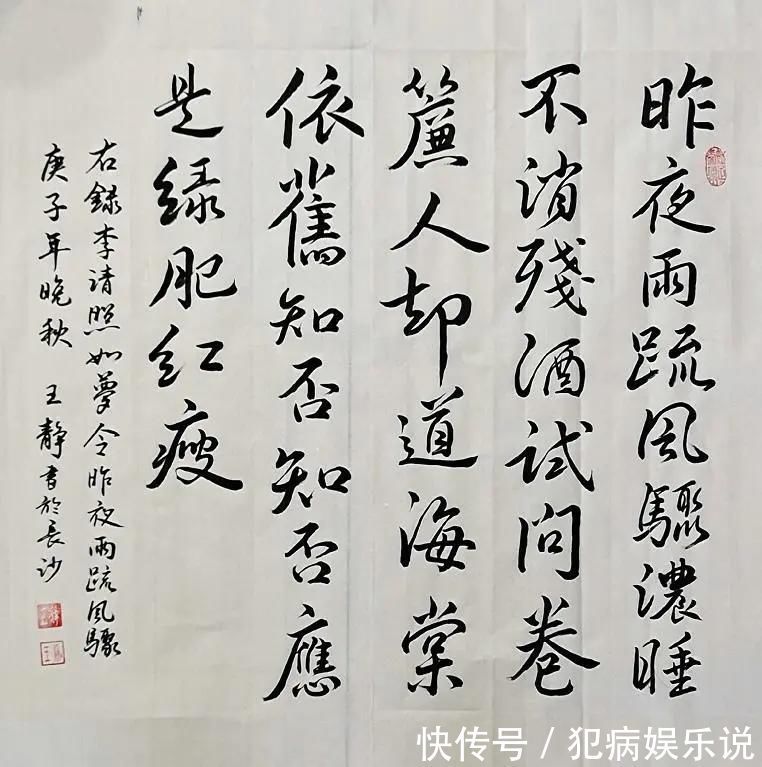 昨夜雨疏风骤濃睡
不消殘酒试问卷
簾人却道海棠
依舊知否知否應
是绿肥红瘦
右録李清照如夢令昨夜雨疏风驟
庚子年晚秋 王靜書於長沙
快传号 / 犯病娱乐说